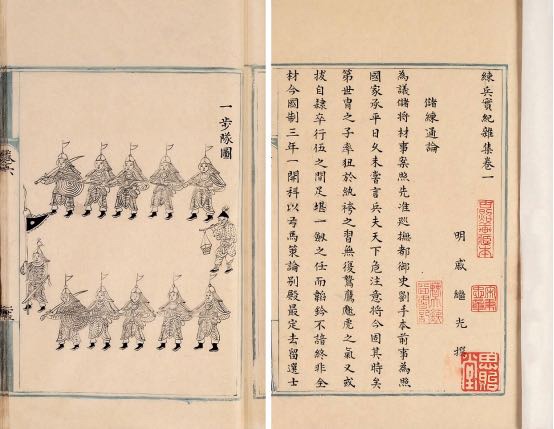 練兵實紀雜集卷一
明 戚繼光 撰
儲練通論
為議儲將材事案照先准巡撫都御史劉手本前事為照
國家承平日久未嘗言兵夫天下危注意將今固其時矣
第世冑之子率狃於紈袴之習無復鷙鷹虓虎之氣又或
拔自隸卒行伍之間足堪 勦之任而韜鈐不諳終非全
材今國制三年一開科以弓馬策論別殿最定去留選士
思貽堂
一步隊圖